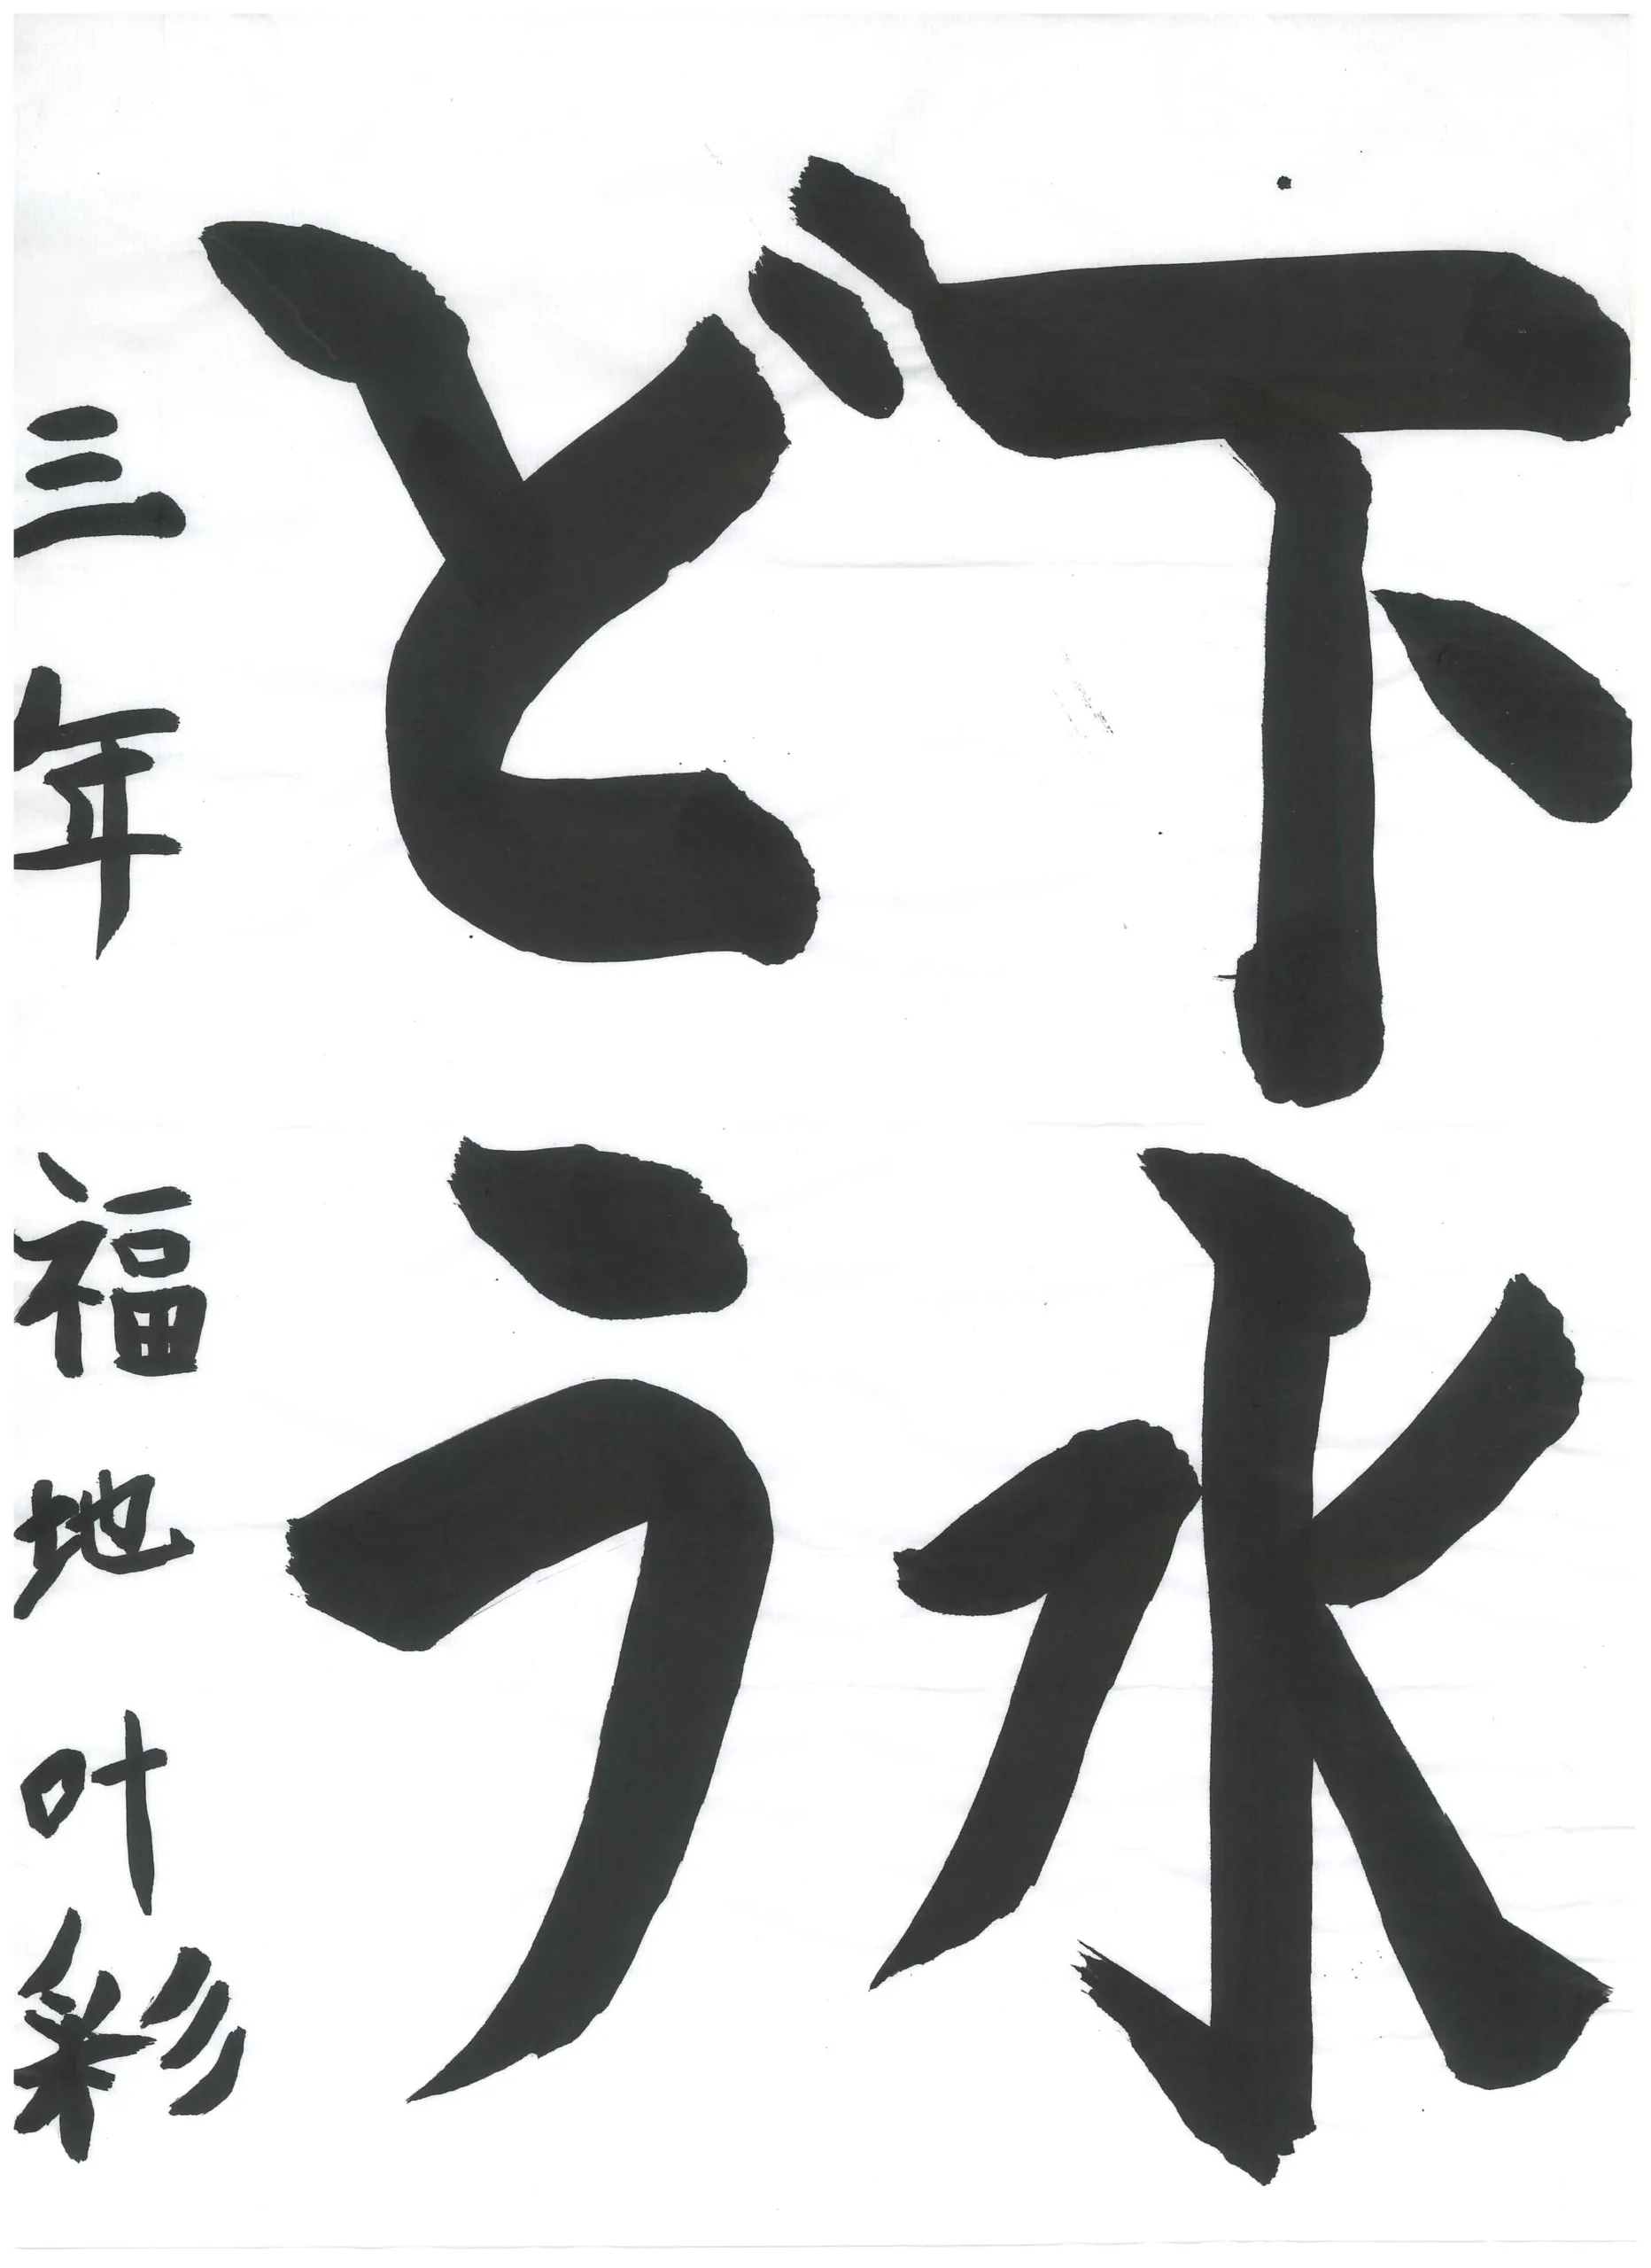 下水
どう
三年 福地叶彩